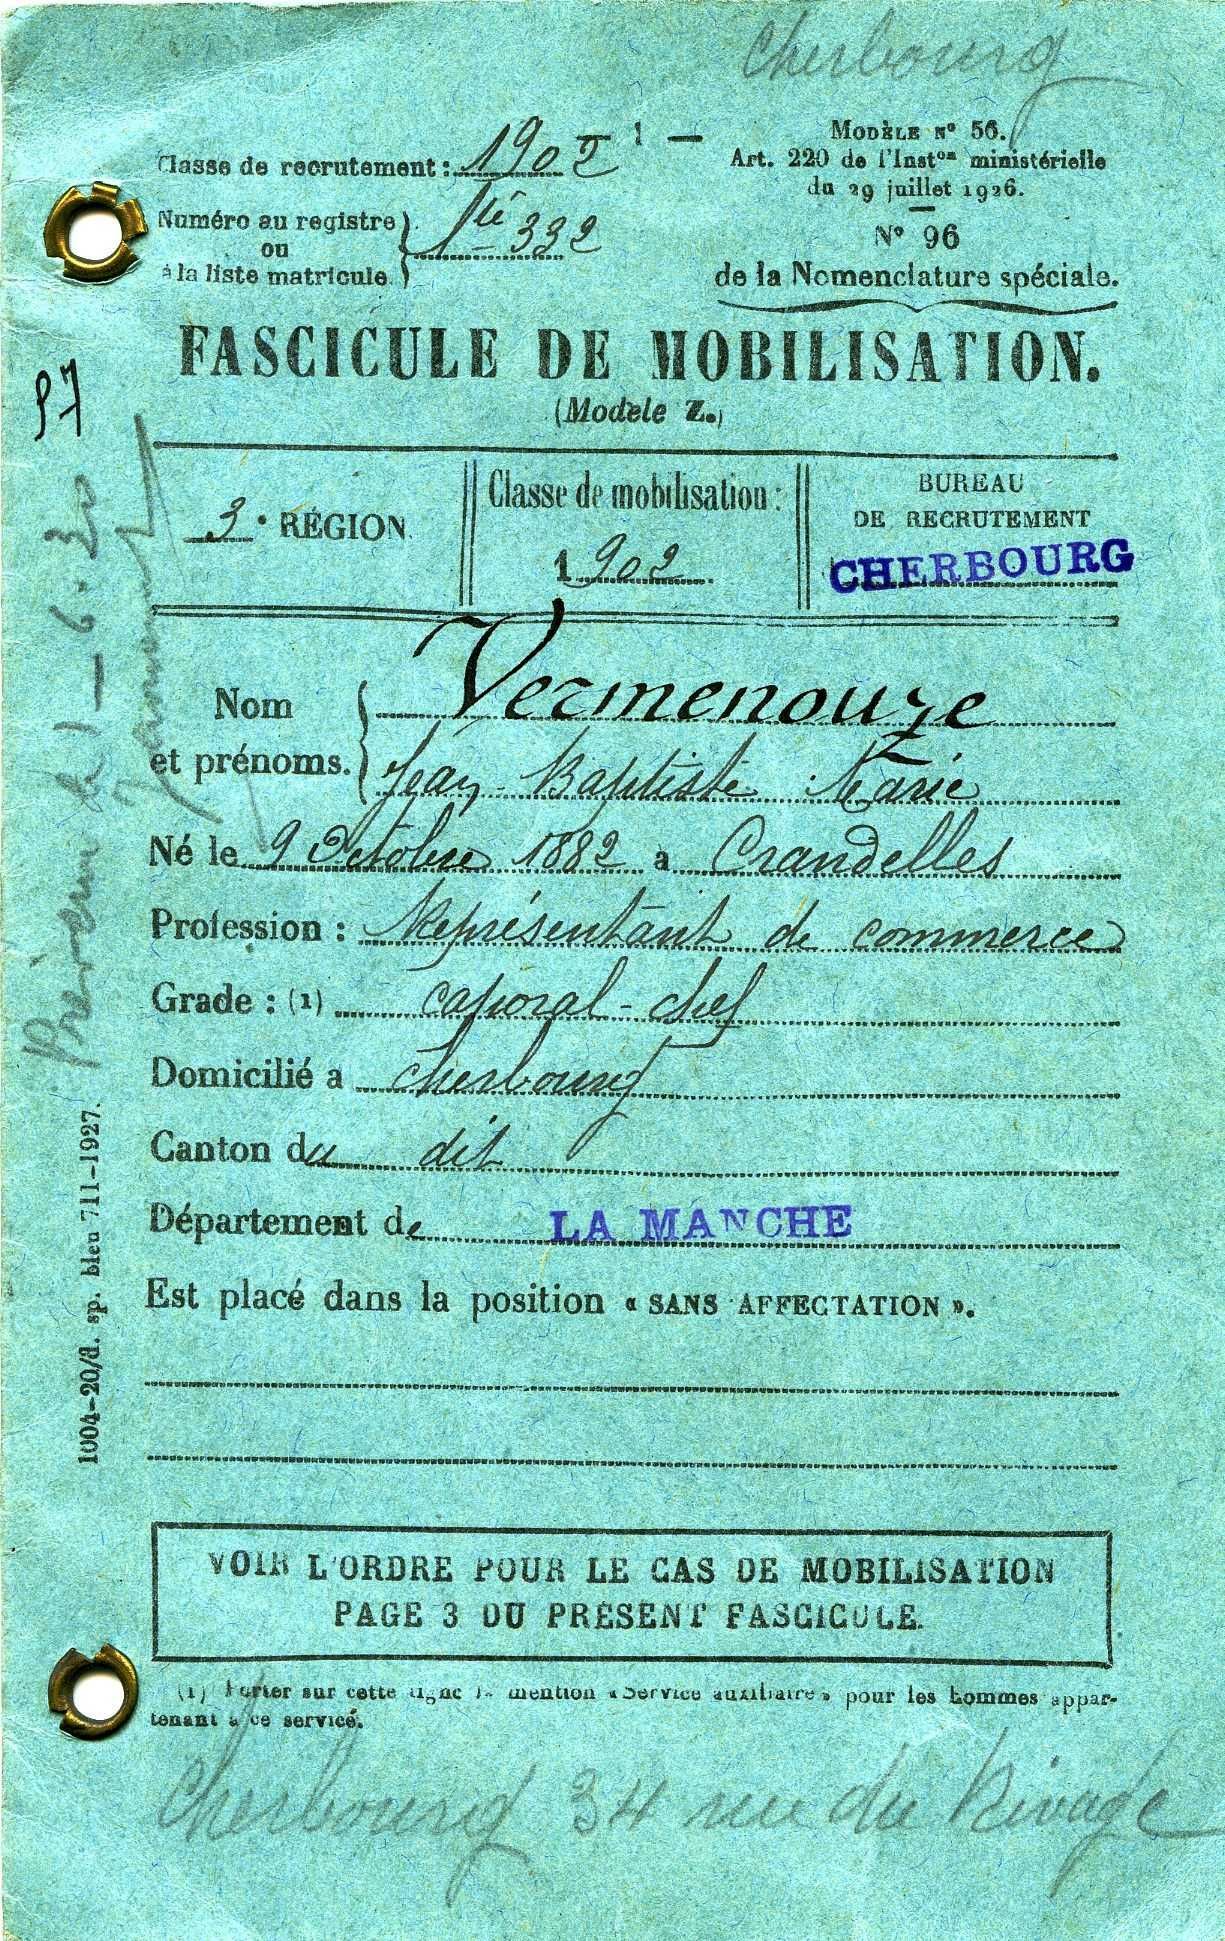 Cherbourg
- 1 -
Classe de recrutement : 1902
Numéro au registre
ou
à la liste matricule. } 332
MODÈLE N° 56.
Art. 220 de l'Inst^on ministérielle
du 29 juillet 1926.
N° 96
de la Nomenclature spéciale.
FASCICULE DE MOBILISATION.
(Modèle Z.)
97
3e RÉGION.
Classe de mobilisation :
1902
BUREAU
DE RECRUTEMENT
CHERBOURG
Nom
et prénoms. } Vermenouze
Jean Baptiste Marie
Né le 9 Octobre 1882 à Crandelles
Profession : Représentant de commerce
Grade : (1) caporal-chef
Domicilié à Cherbourg
Canton du dit
Département de LA MANCHE
Est placé dans la position « SANS AFFECTATION ».
VOIR L'ORDRE POUR LE CAS DE MOBILISATION
PAGE 3 DU PRÉSENT FASCICULE.
(1) Porter sur cette ligne la mention « Service auxiliaire » pour les hommes appar-
tenant à ce service.
Cherbourg 34 rue du Rivage
1-6-30
1004-20/d. sp. bleu 711-1927.